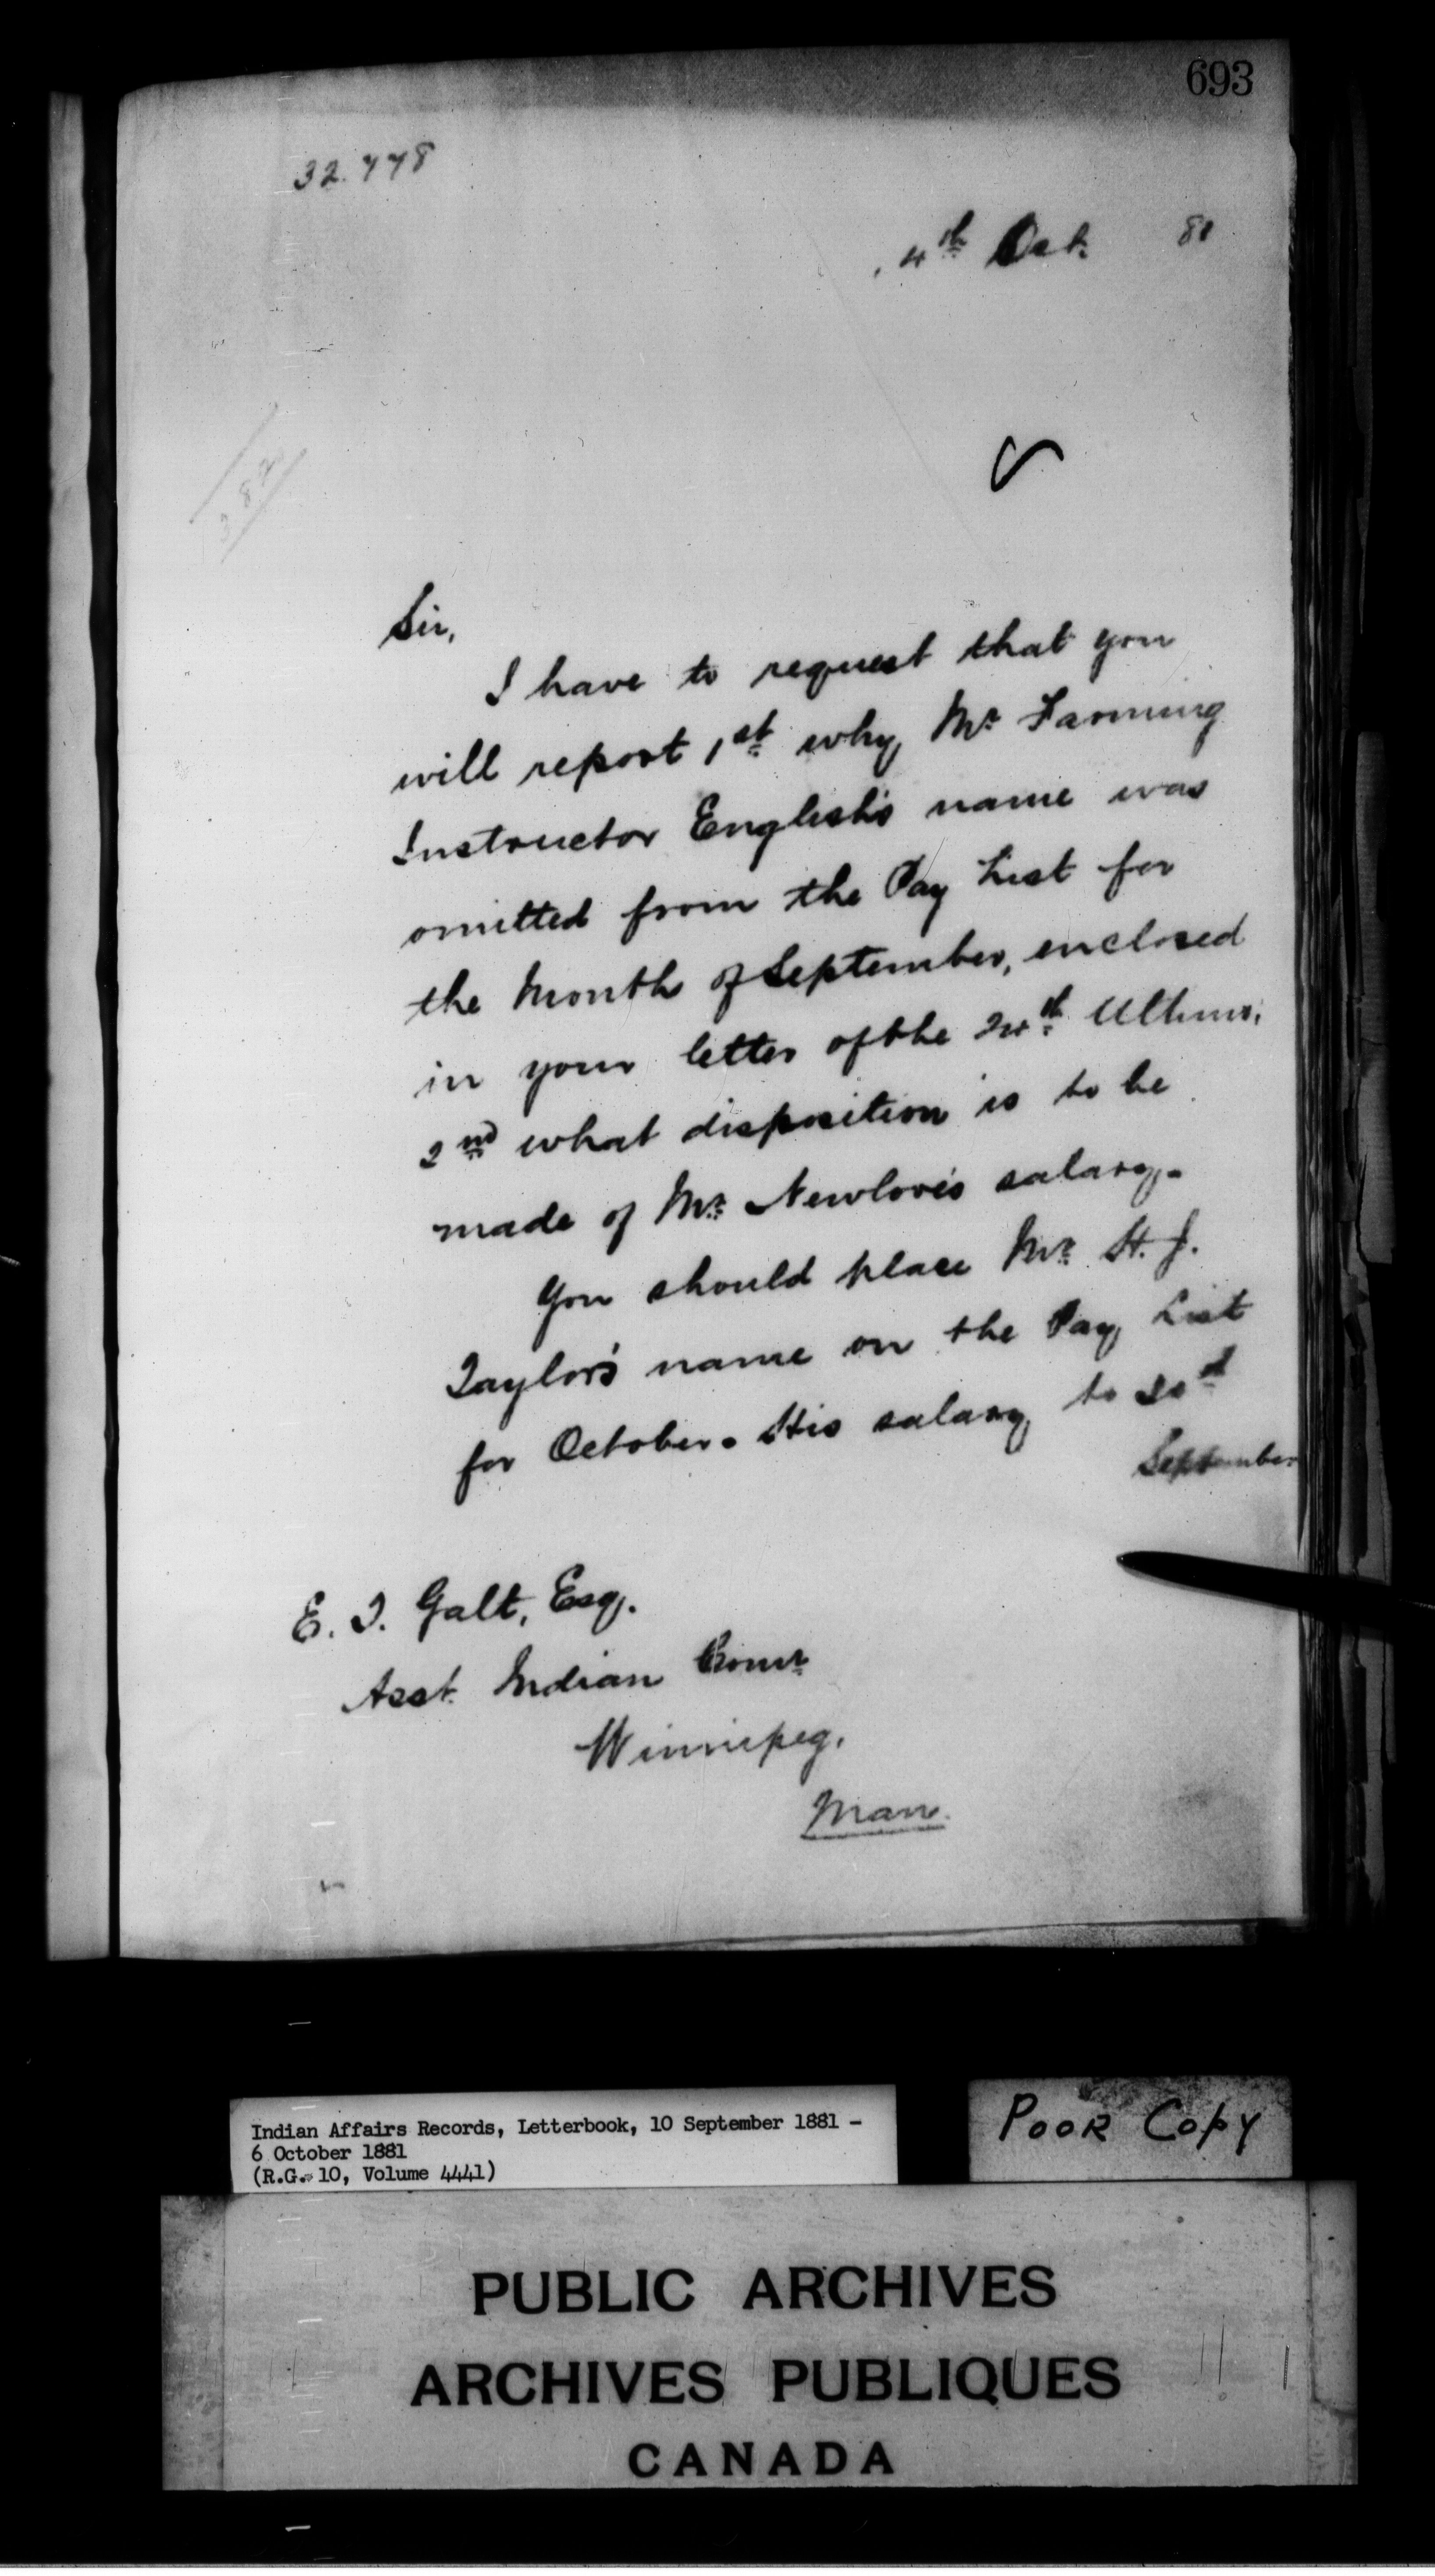 693
32.448
4th Oct. 81
382
Sir,
I have to request that you
will report 1st why Mr Farming
Instructor English's name was
omitted from the Pay List for
the Month of September, enclosed
in your letter of the 24th Ultimo.
2nd what disposition is to be
made of Mr. Newlove's salary.
You should place Mr. H. J.
Taylor's name on the Pay List
for October. His salary to
September
E. T. Galt, Esq.
Asst. Indian Comr
Winnipeg.
Man.
Indian Affairs Records, Letterbook, 10 September 1881 -
6 October 1881
(R.G. 10, Volume 4441)
POOR COPY
PUBLIC ARCHIVES
ARCHIVES PUBLIQUES
CANADA